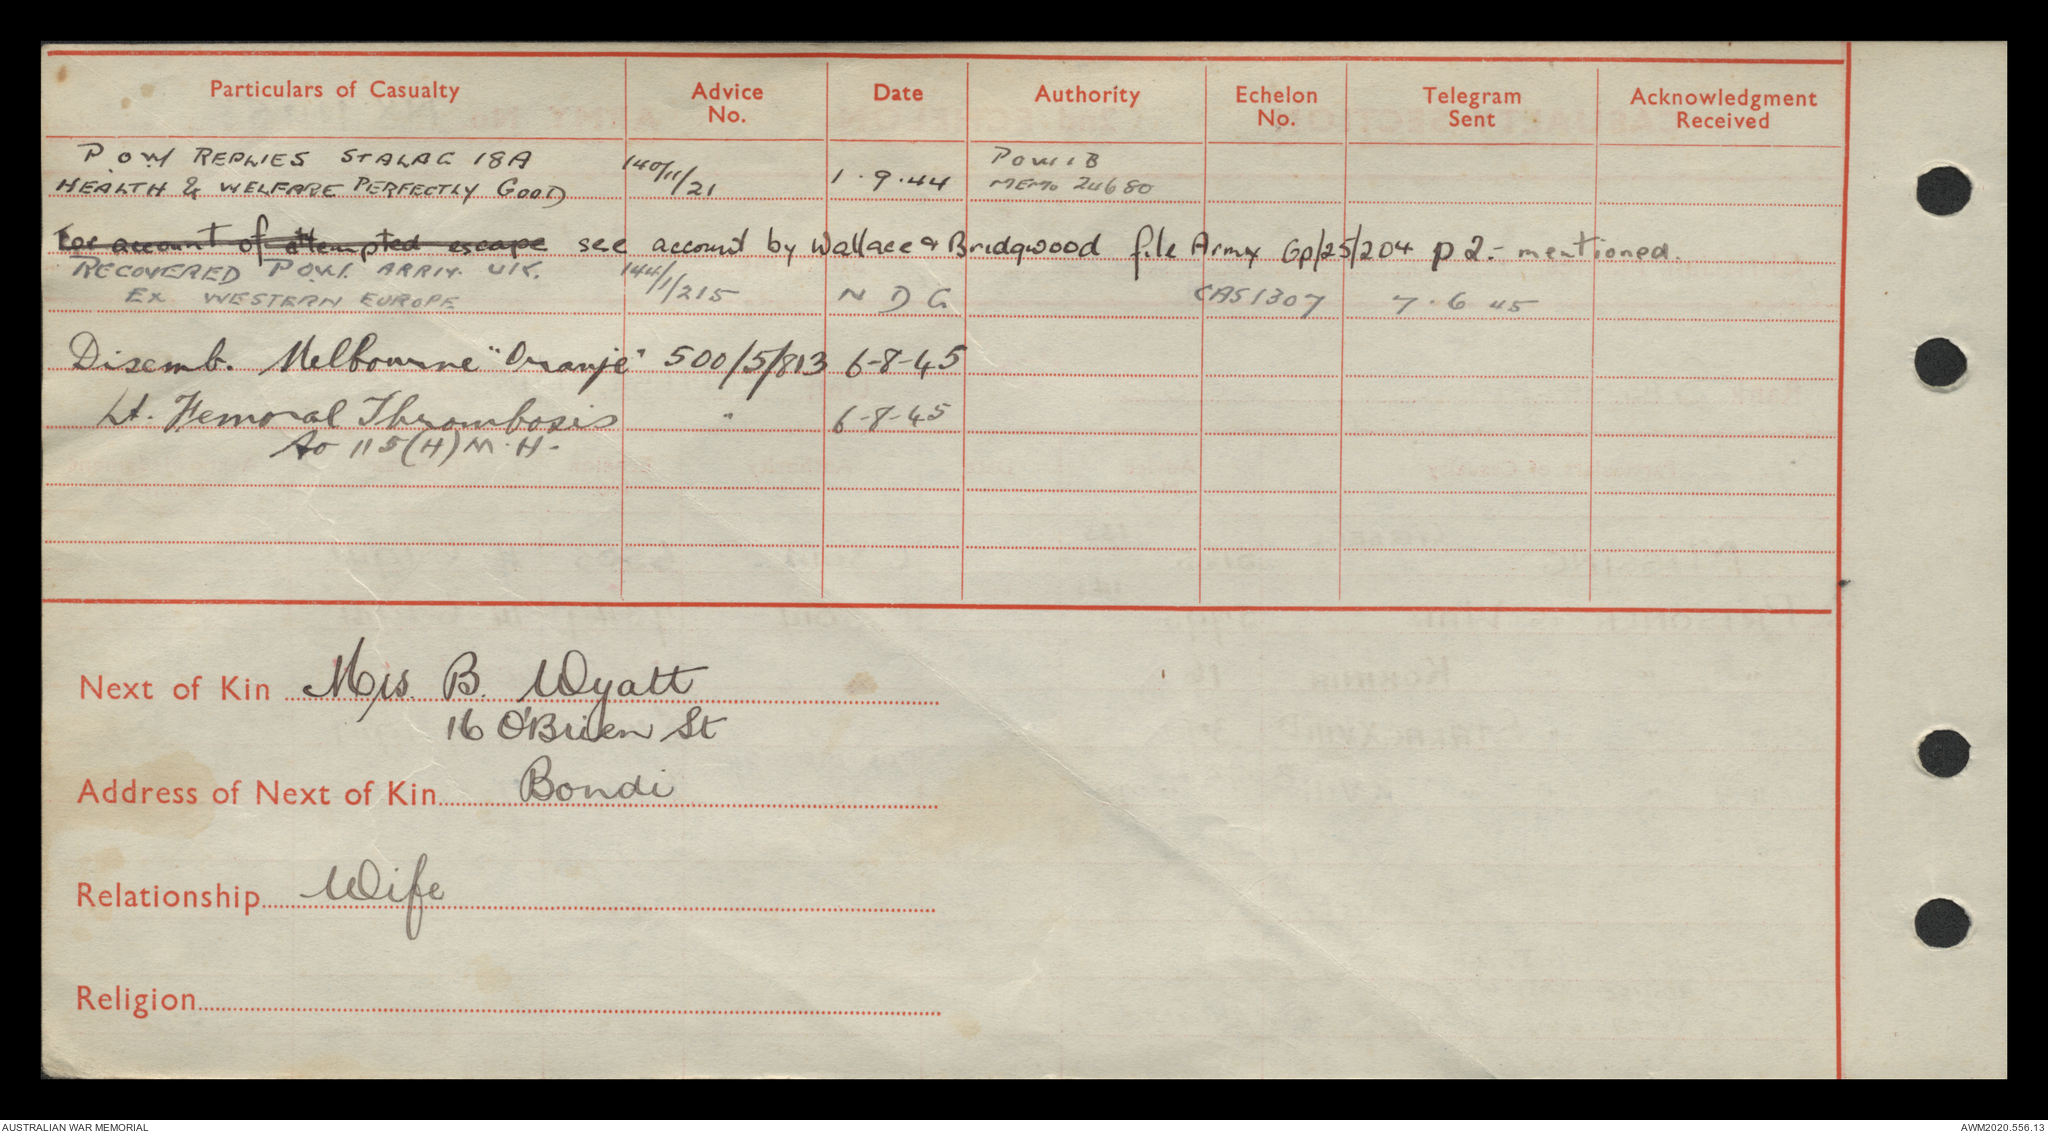 Particulars of Casualty Advice No. Date Authority Echelon No. Telegram Sent Acknowledgment Received
P.O.W REPLIES STALAG 18A 140/11/21 1.9.44 POWIB
HEALTH & WELFARE PERFECTLY GOOD MEMO 24680
For account of attempted escape see account by Wallace & Bridgwood file Army Gp/25/204 p 2 :- mentioned.
RECOVERED P.O.W. ARRIV. U.K. 144/1/215 N D G CAS1307 7.6.45
Ex WESTERN EUROPE
Disemb. Melbourne "Oranje" 500/5/813 6-8-45
Lt. Femoral Thrombosis " 6-8-45
to 115(H)M.H.
Next of Kin Mrs. B. Wyatt
16 O'Brien St
Address of Next of Kin Bondi
Relationship Wife
Religion
AUSTRALIAN WAR MEMORIAL AWM2020.556.13